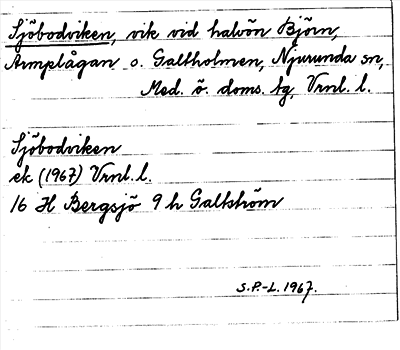 Sjöbodviken, vik vid halvön Björn,
Armplågan o. Galtholmen, Njurunda sn,
Med. ö. doms. tg, Vrnl. l.
Sjöbodviken
ek (1967) Vrnl. l.
16 H Bergsjö 9 h Galtström
S.P.-L. 1967.